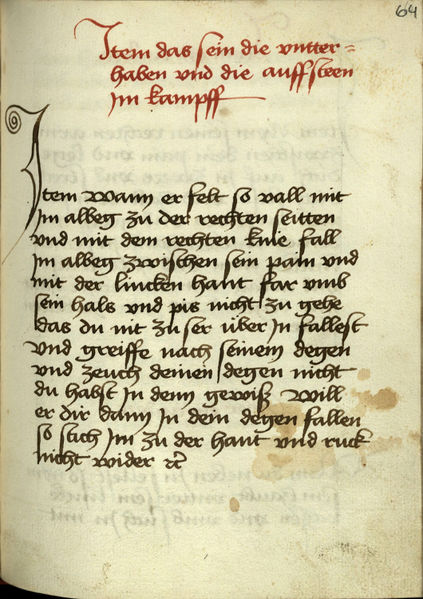 64
Item das sein die vntter=
haben vnd die auffsteen
im kampff
Item wann er felt so vall mit
im albeg zu der rechten seitten
vnd mit dem rechten knie fall
im albeg zwischen sein pain vnd
mit der lincken hant far vmb
sein hals vnd pis nicht zu gehe
das du nit zu ser über in fallest
vnd greiffe nach seinem degen
vnd zeuch deinen degen nicht
du habst in dem gewiß will
er dir dann in dein degen fallen
so stich im zu der hant vnd ruck
nicht wider ꝛc